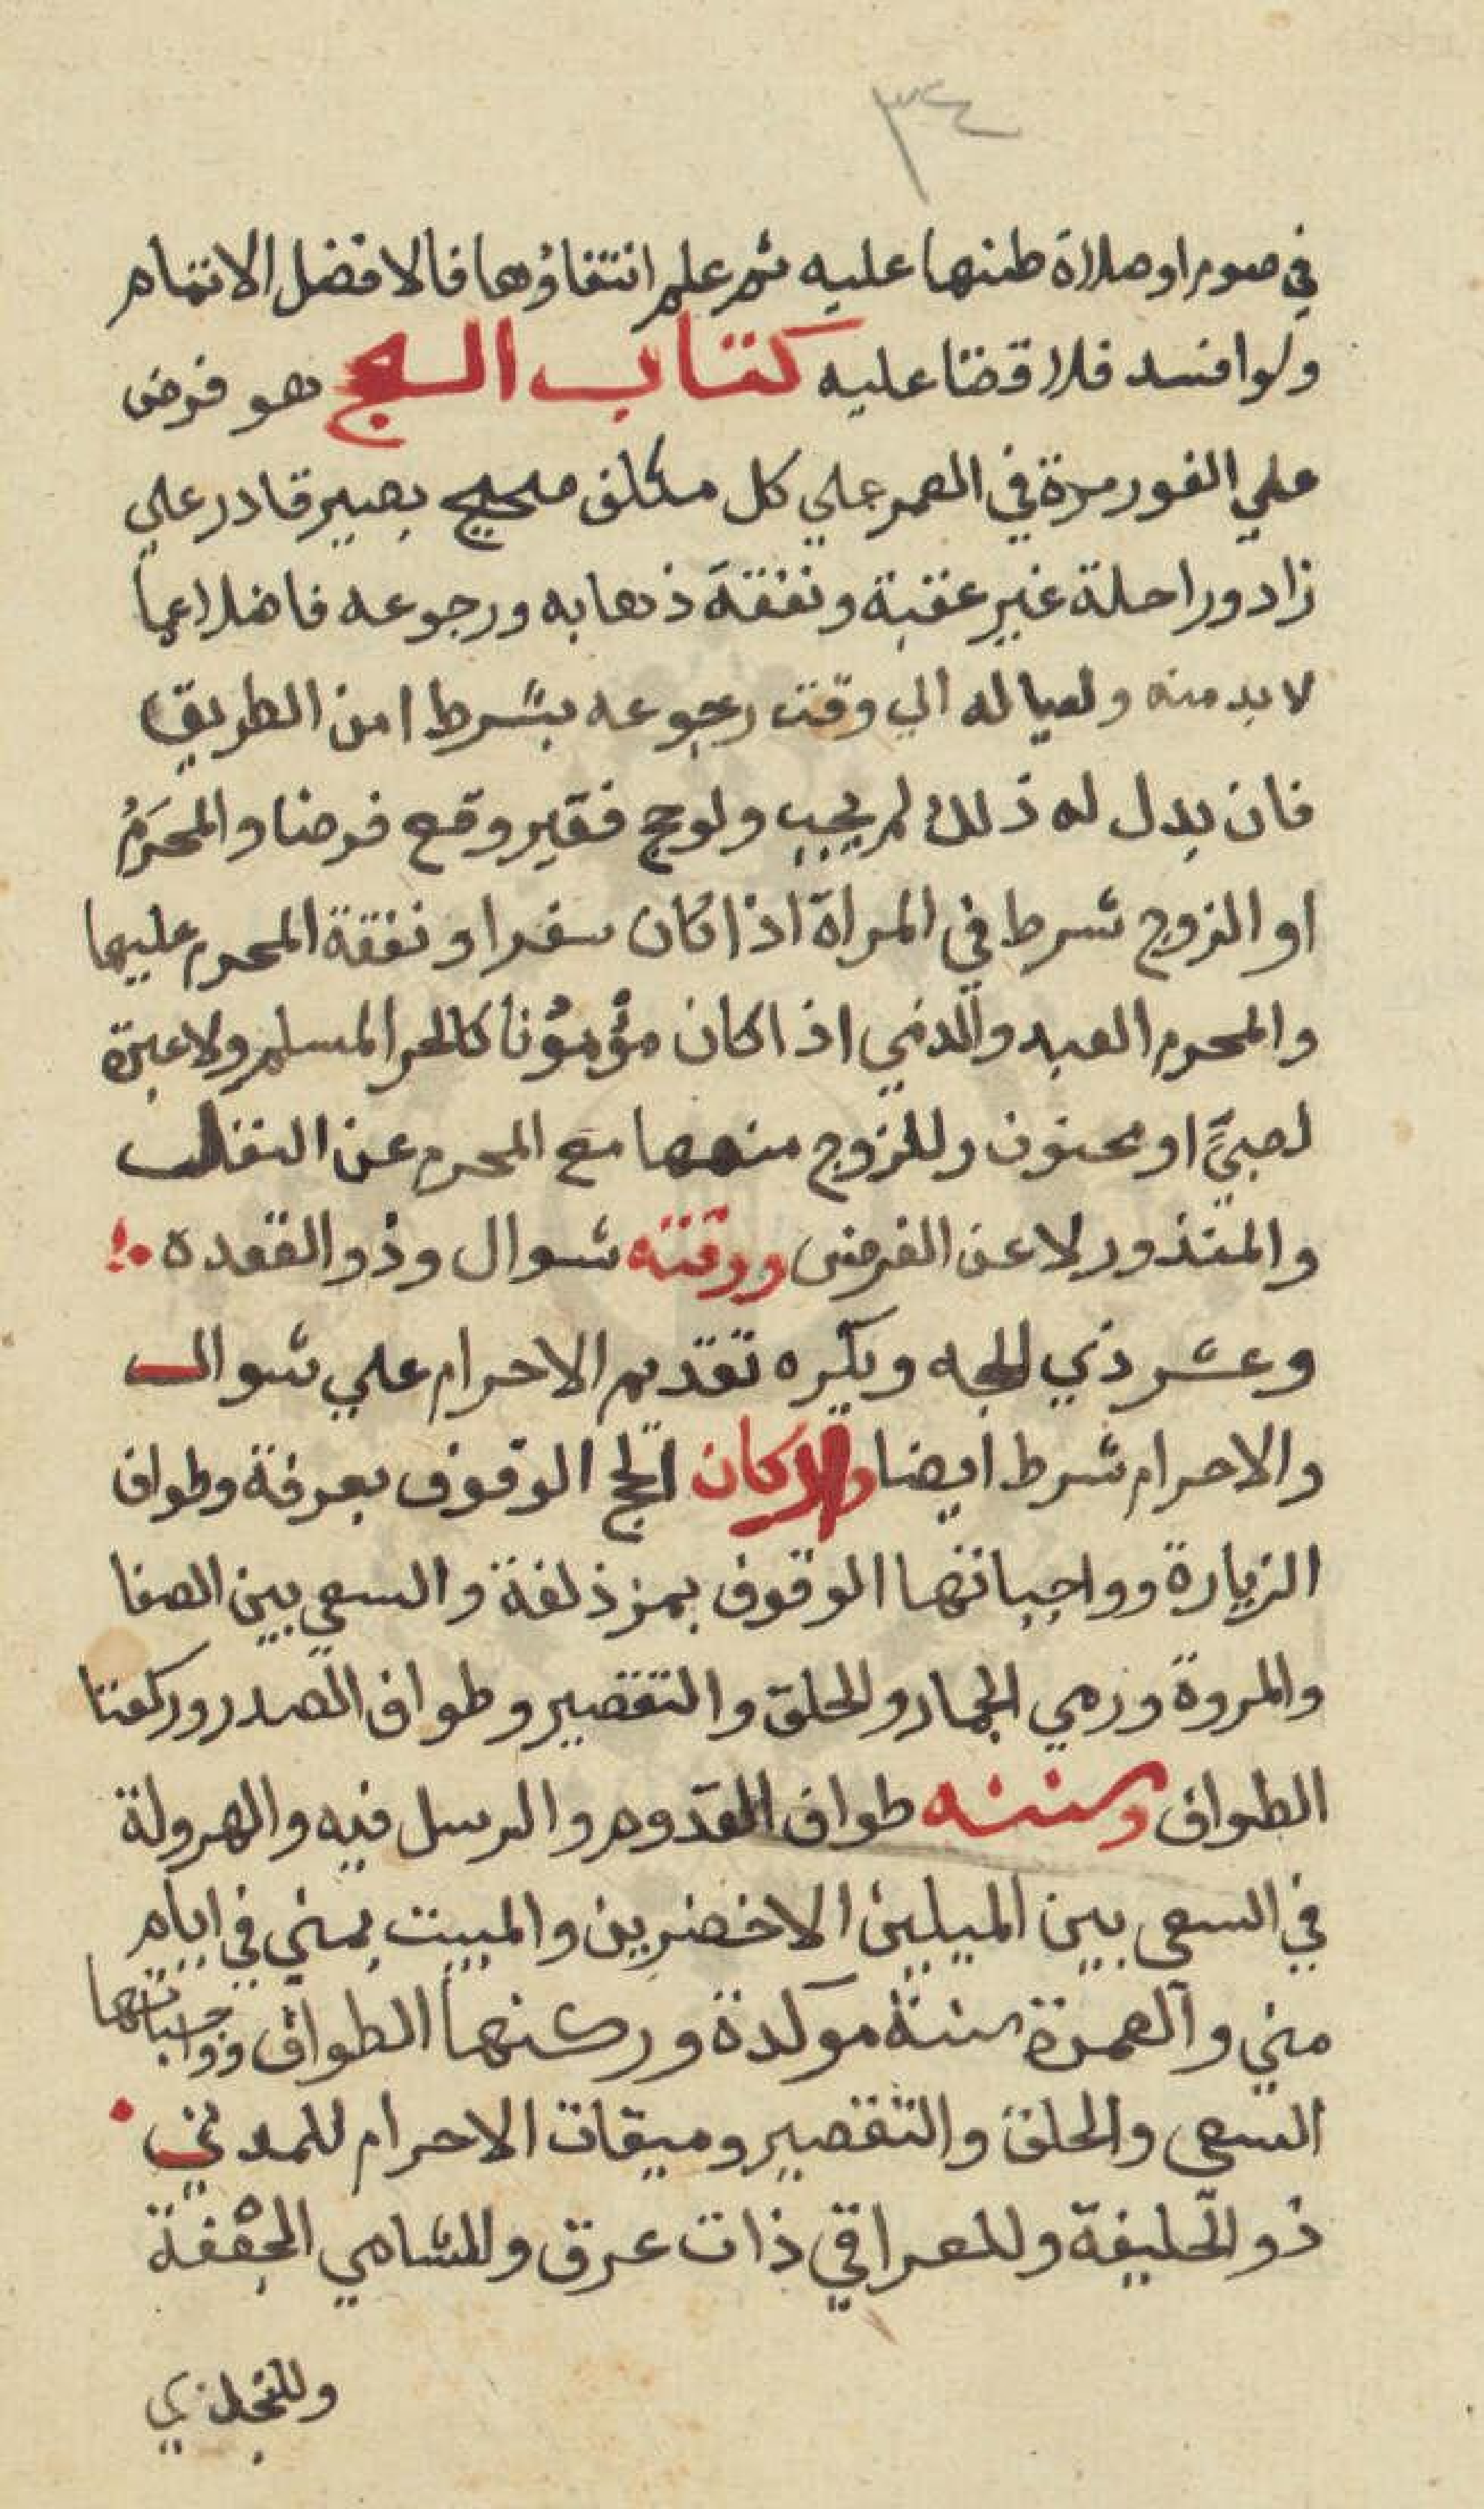 ٣٤
في صوم او صلاة ظنها عليه ثم علم انتفاؤها فالافضل الاتمام
ولو افسد فلا قضا عليه كتاب الحج هو فرض
علي الفور مرة في العمر علي كل مكلف صحيح بصير قادر علي
زاد وراحلة غير عقبة ونفقة ذهابه ورجوعه فاضلا عما
لا بد منه ولعياله الي وقت رجوعه بشرط امن الطريق
فان بدل له ذلك لم يجب ولو حج فقير وقع فرضا والمحرَمُ
او الزوج شرط في المراة اذا كان سفرا ونفقة المحرم عليها
والمحرم العبد والذمي اذا كان مؤمونا كالحر المسلم ولا عبرة
لصبيٍّ او مجنون وللزوج منعها مع المحرم عن التنفل
والمنذور لا عن الفرض ووقته شوال وذو القعدة
وعشر ذي الحجه ويكره تقديم الاحرام علي شوال
والاحرام شرط ايضا واركان الحج الوقوف بعرفة وطواف
الزيارة وواجباتها الوقوف بمزذلفة والسعي بين الصفا
والمروة ورمي الجمار والحلق والتقصير وطواف الصدر وركعتا
الطواف وسننه طواف القدوم والرمل فيه والهرولة
في السعي بين الميلين الاخضرين والمبيت بمني في ايام
مني والعمرة سنة موكدة وركنها الطواف وواجباتها
السعي والحلق والتقصير وميقات الاحرام للمدني
ذو الحليفة وللعراقي ذات عرق وللشامي الجحفة
وللنجدي